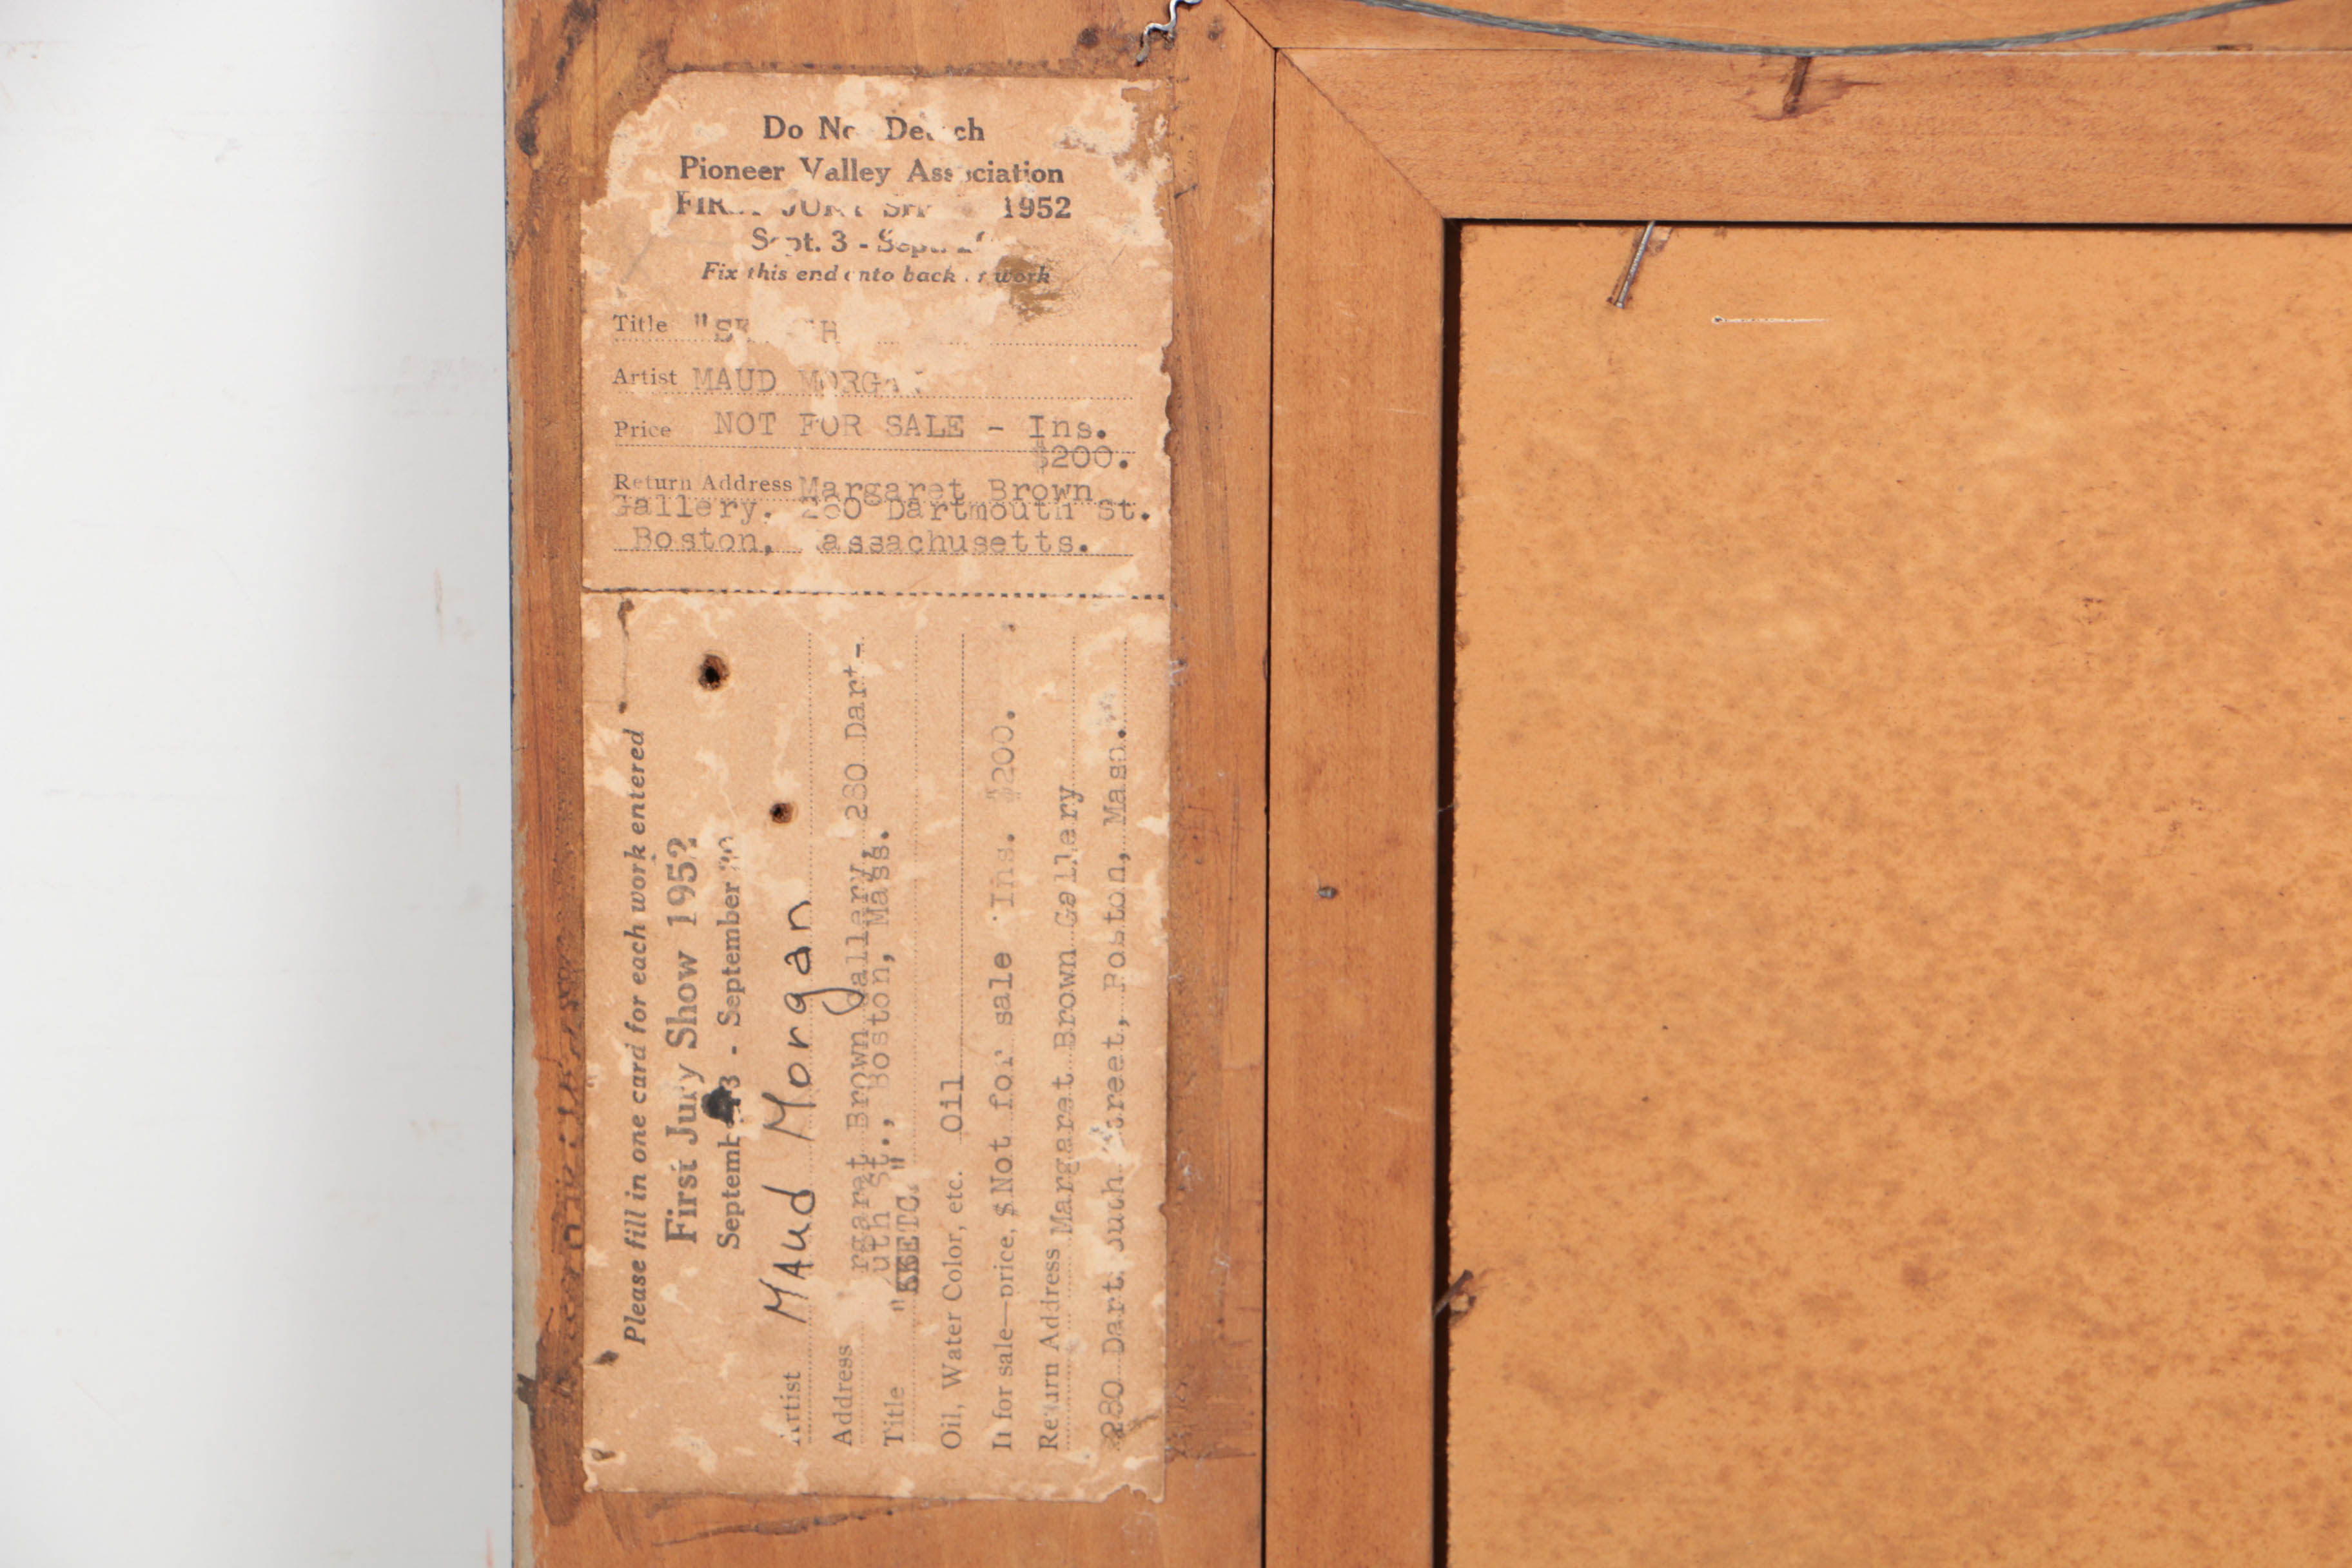 Do Not Detach
Pioneer Valley Association
FIRST JURY SHOW 1952
Sept. 3 - Sept.
Fix this end onto back of work
Title
Artist MAUD MORGAN
Price NOT FOR SALE - Ins.
$200.
Return Address Margaret Brown
Gallery, 280 Dartmouth St.
Boston, Massachusetts.
Please fill in one card for each work entered
First Jury Show 1952
September 3 - September
Artist Maud Morgan
Address Margaret Brown Gallery, 280 Dart-
mouth St., Boston, Mass.
Title "SKETCH"
Oil, Water Color, etc. Oil
If for sale—price, $ Not for sale Ins. $200.
Return Address Margaret Brown Gallery
280 Dartmouth Street, Boston, Mass.